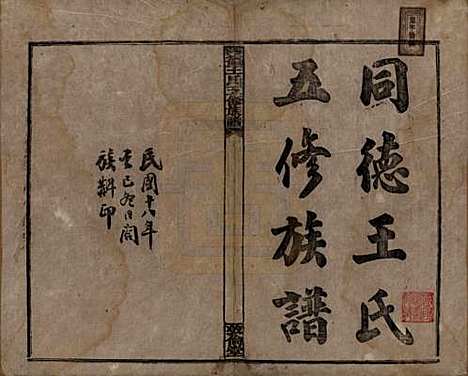 同德王氏
五修族譜
民國十八年
己巳冬月闔
族斠印